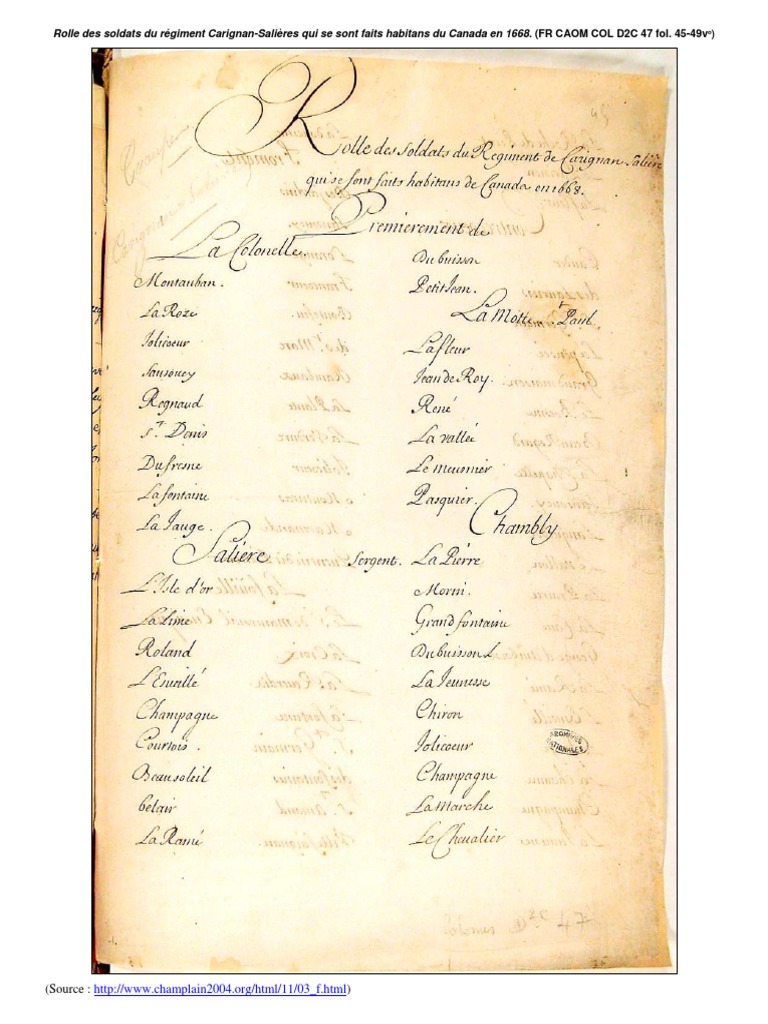 Rolle des soldats du régiment Carignan-Salières qui se sont faits habitans du Canada en 1668. (FR CAOM COL D2C 47 fol. 45-49vº)
Rolle des soldats du Regiment de Carignan Saliere
qui se sont faits habitans de Canada en 1668.
Premierement de
La Colonelle.
Montauban.
La Roze
Jolicoeur
Sansoucy
Regnaud
St. Denis
Dufresne
La fontaine
La Jauge.
Saliere
L'Isle d'or
La Lime
Roland
L'Esueillé
Champagne
Courtois.
Beausoleil
belair
La Ramé
Dubuisson
Petit Jean.
La Motte St Paul
La fleur
Jean de Roy.
René
La vallée
Le meusnier
Pasquier.
Chambly
Sergent. La Pierre
Morni.
Grand fontaine
Dubuisson
La Jeunesse
Chiron
Jolicoeur
Champagne
La Marche
Le Cheualier
ARCHIVES NATIONALES
(Source : http://www.champlain2004.org/html/11/03_f.html)